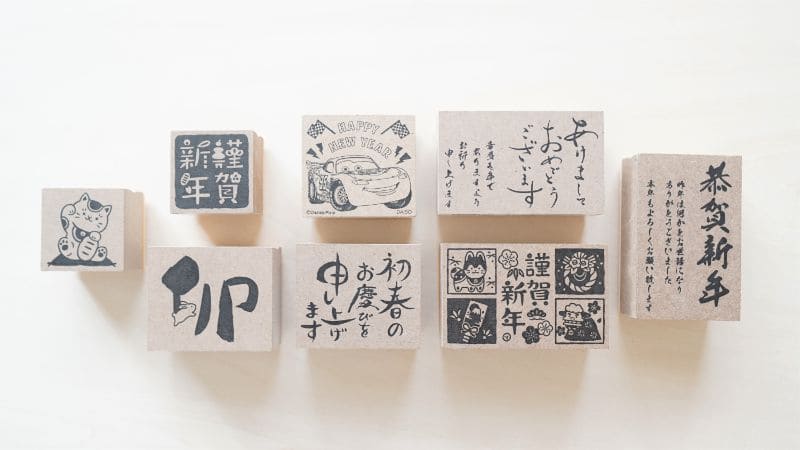 謹賀
新年
HAPPY
NEW YEAR
©Disney/Pixar
DAISO
あけまして
おめでとう
ございます
幸多き年で
ありますよう
お祈り
申し上げます
恭賀新年
昨年は何かとお世話になり
ありがとうございました
本年もよろしくお願い致します
卯
初春の
お慶びを
申し上げ
ます
謹賀
新年